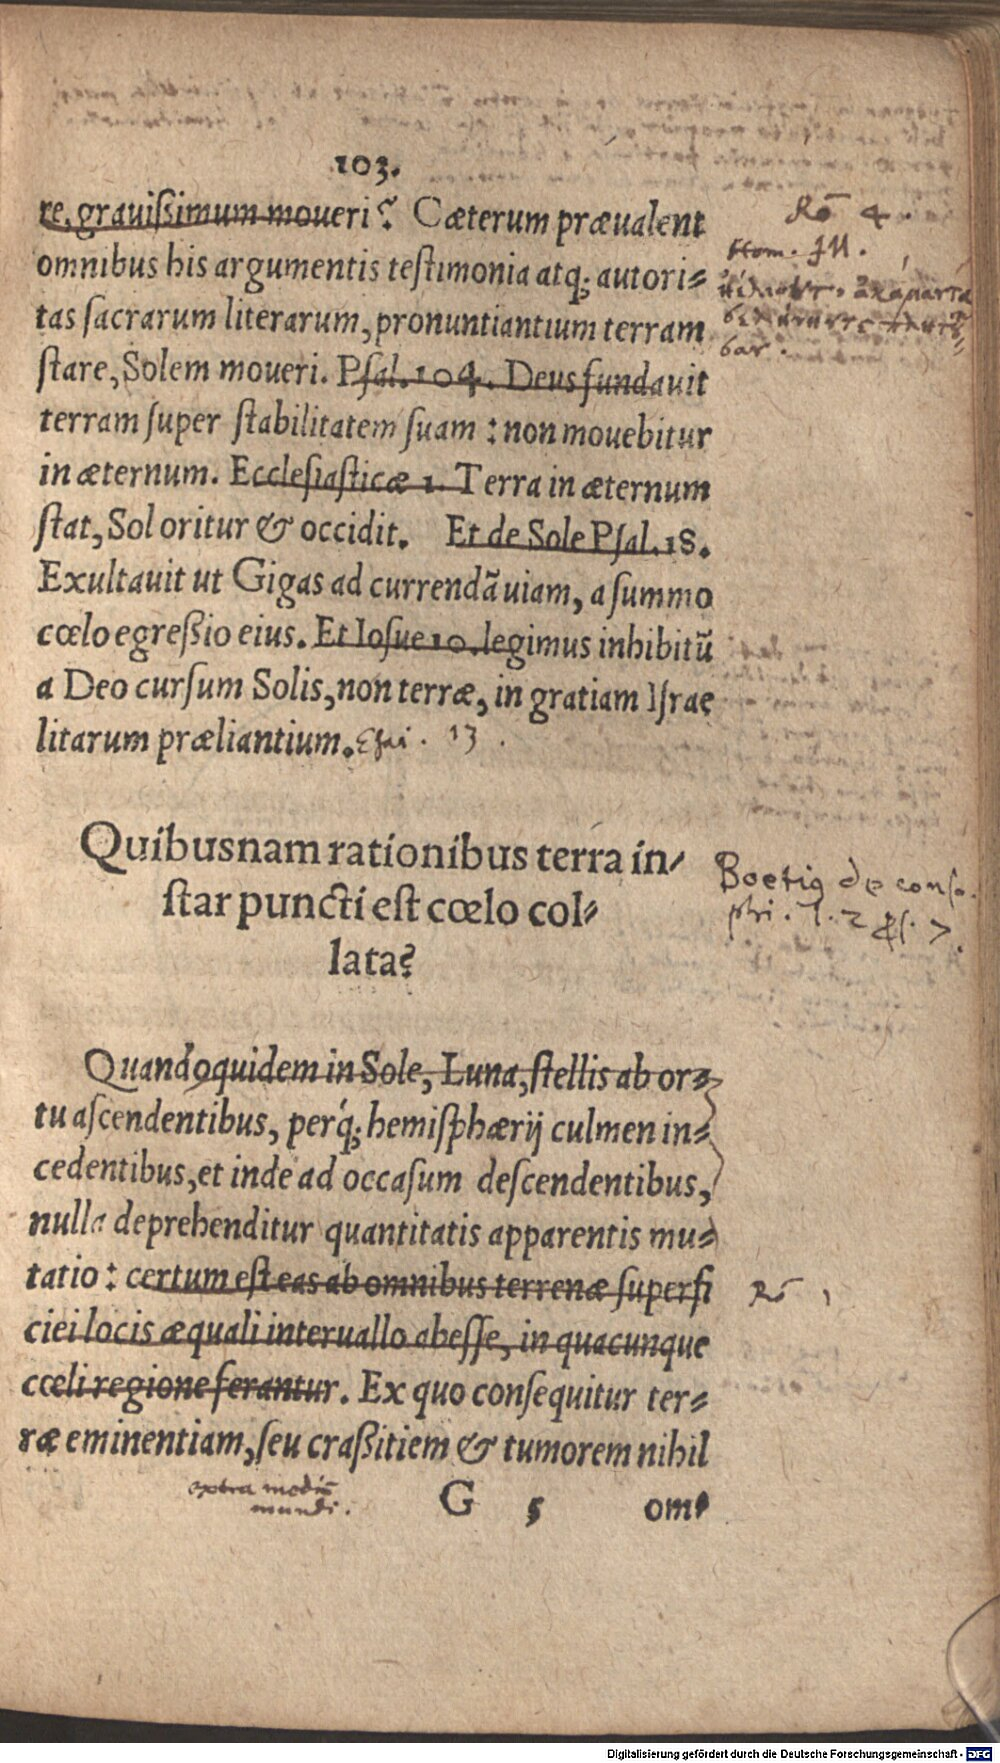 103.
re, grauißimum moueri? Cæterum præualent
omnibus his argumentis teſtimonia atq; autori-
tas ſacrarum literarum, pronuntiantium terram
ſtare, Solem moueri. Pſal. 104. Deus fundauit
terram ſuper ſtabilitatem ſuam: non mouebitur
in æternum. Eccleſiaſticæ 1. Terra in æternum
ſtat, Sol oritur & occidit. Et de Sole Pſal. 18.
Exultauit ut Gigas ad currendã uiam, a ſummo
cœlo egreßio eius. Et Ioſue 10. legimus inhibitũ
a Deo curſum Solis, non terræ, in gratiam Iſrae
litarum præliantium. Eſai. 13.
Rõ 4.
Hom.
Quibusnam rationibus terra in-
ſtar puncti eſt cœlo col-
lata?
Boetiꝯ de conſo.
phi. l. 2 7.
Quandoquidem in Sole, Luna, ſtellis ab or-
tu aſcendentibus, perq́; hemiſphærij culmen in-
cedentibus, et inde ad occaſum deſcendentibus,
nulla deprehenditur quantitatis apparentis mu-
tatio: certum eſt eas ab omnibus terrenæ ſuperfi
ciei locis æquali interuallo abeſſe, in quacunque
cœli regione ferantur. Ex quo conſequitur ter-
ræ eminentiam, ſeu craßitiem & tumorem nihil
Rõ 1
extra mediũ
mundi.
G 5 om-
Digitalisierung gefördert durch die Deutsche Forschungsgemeinschaft - DFG